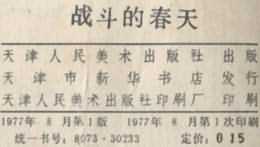 战斗的春天
天津人民美术出版社 出版
天津市新华书店 发行
天津人民美术出版社印刷厂 印刷
1977年8月第1版 1977年8月第1次印刷
统一书号：8073·30233 定价：0.15